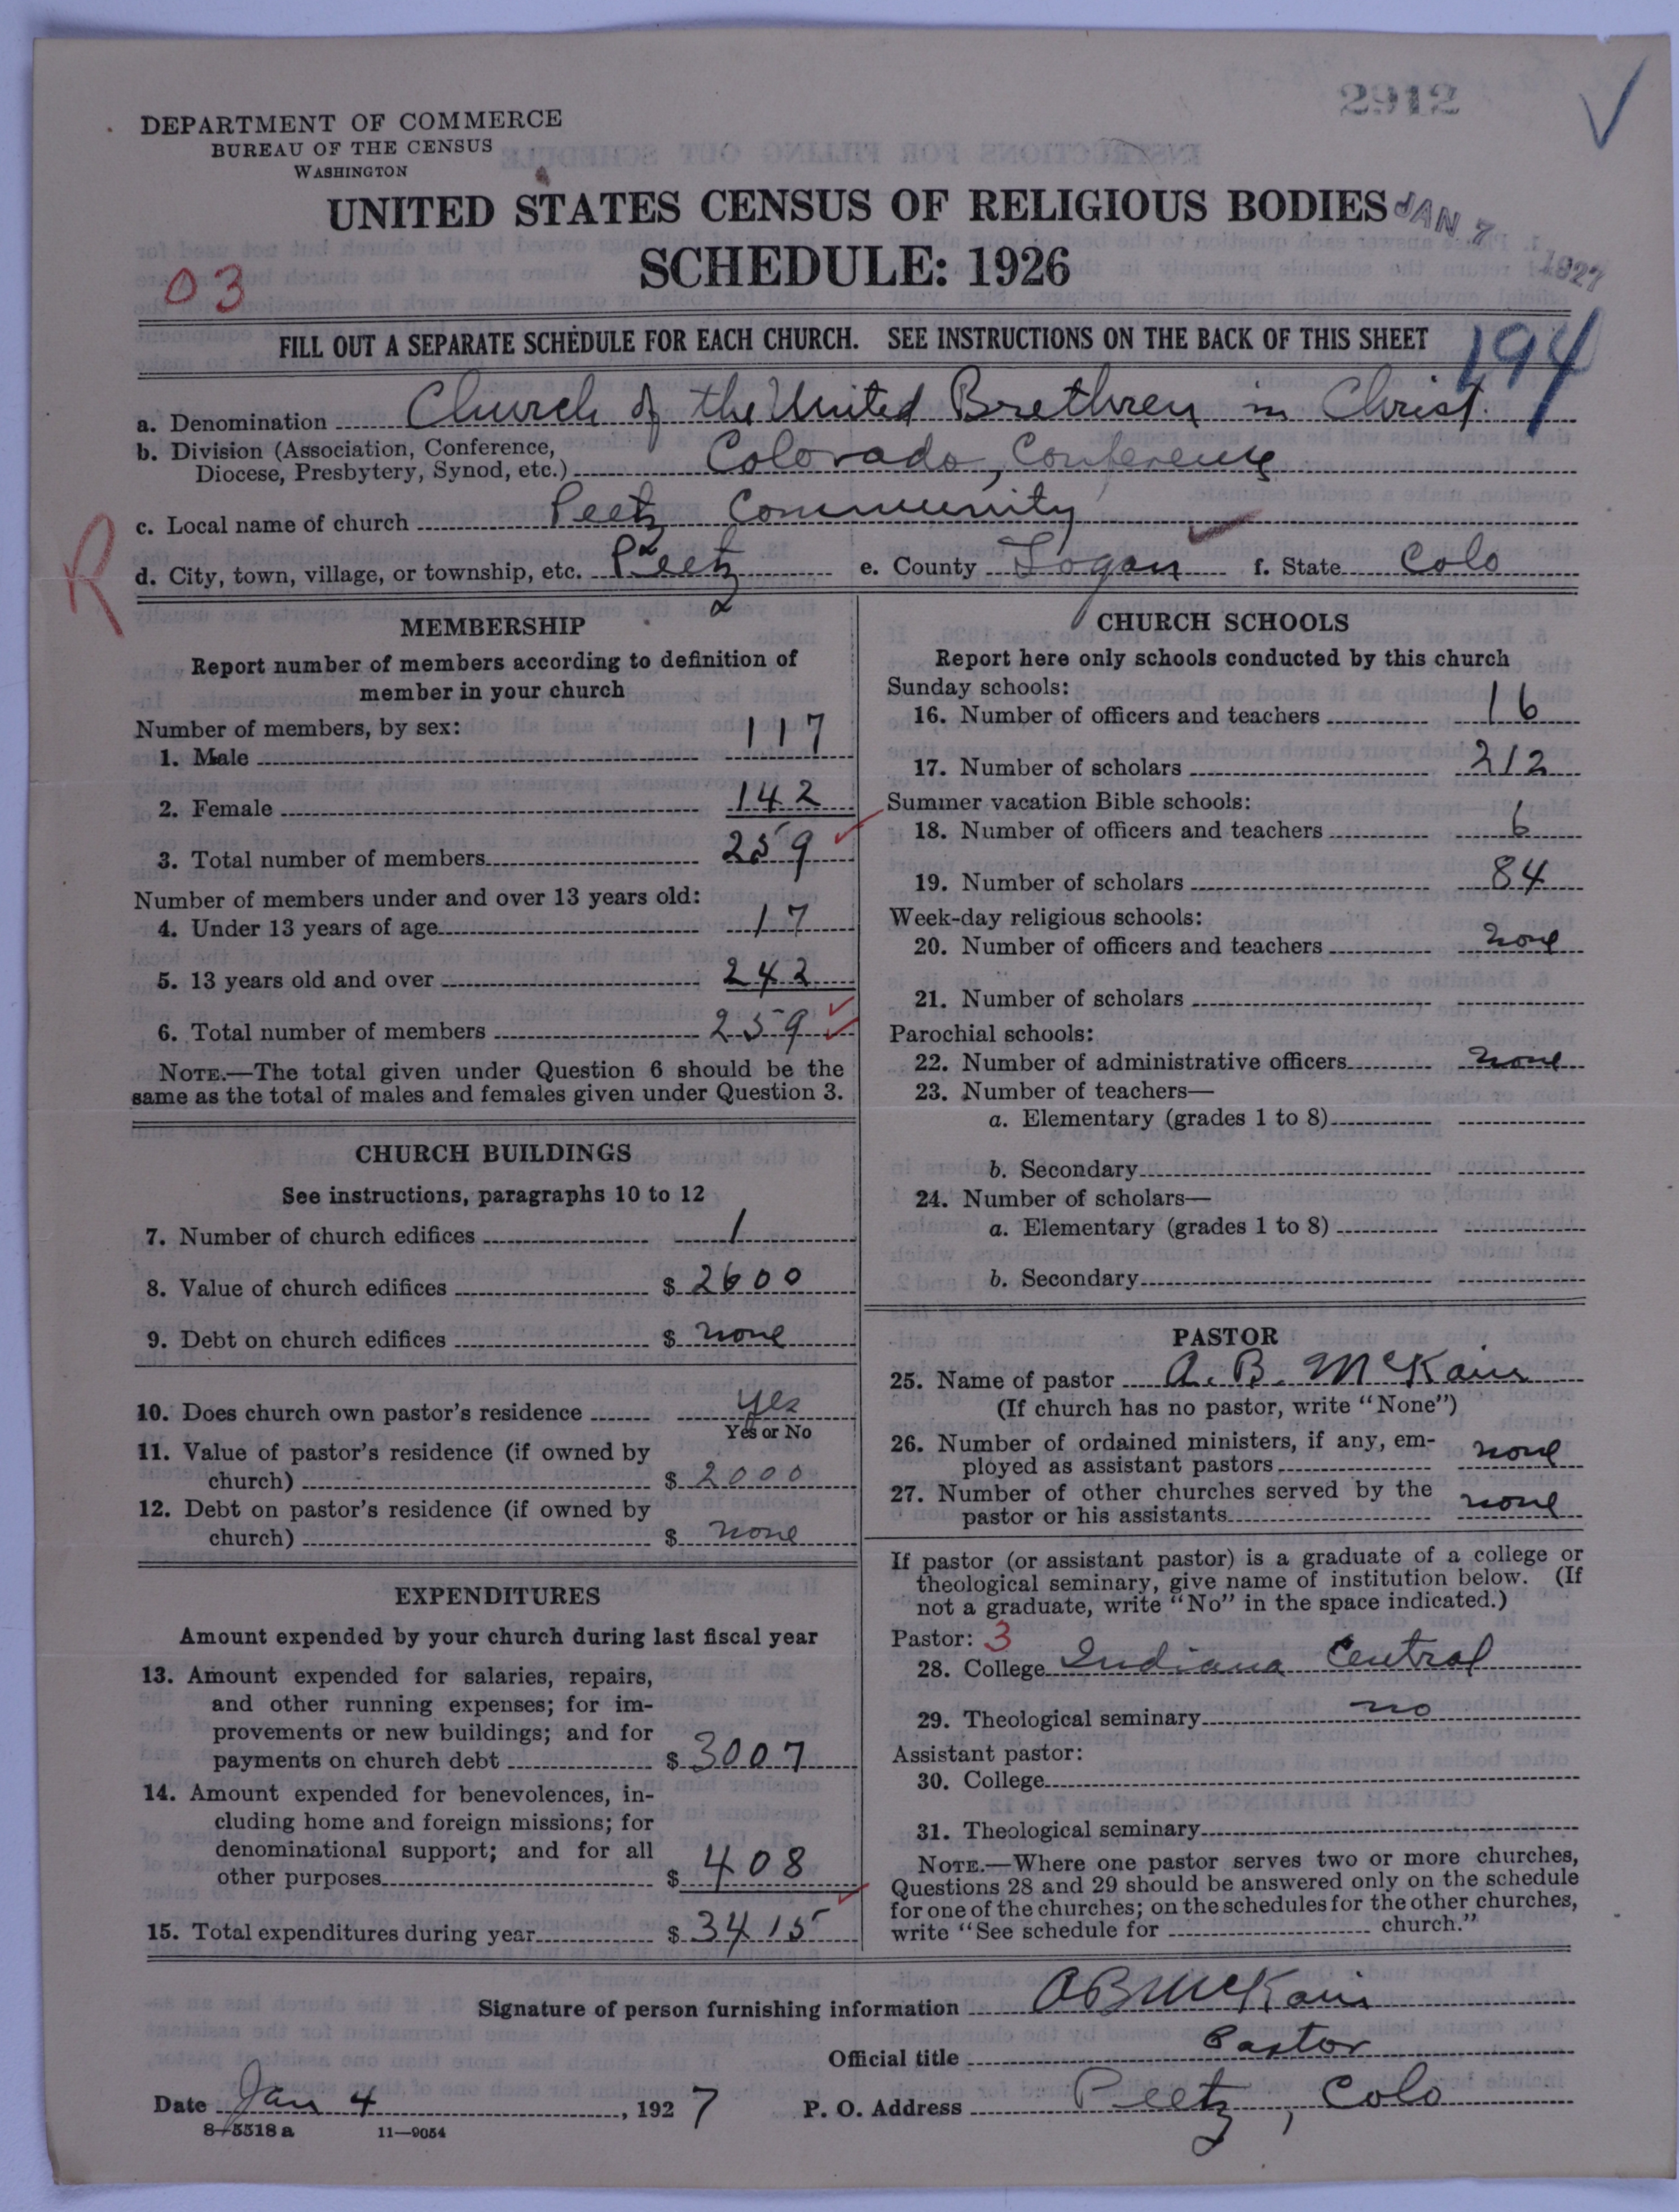 2912
DEPARTMENT OF COMMERCE
BUREAU OF THE CENSUS
WASHINGTON
UNITED STATES CENSUS OF RELIGIOUS BODIES
JAN 7 1927
SCHEDULE: 1926
03
FILL OUT A SEPARATE SCHEDULE FOR EACH CHURCH. SEE INSTRUCTIONS ON THE BACK OF THIS SHEET
194
a. Denomination Church of the United Brethren in Christ.
b. Division (Association, Conference,
Diocese, Presbytery, Synod, etc.) Colorado, Conference
c. Local name of church Peetz Community
R
d. City, town, village, or township, etc. Peetz e. County Logan f. State Colo
MEMBERSHIP
Report number of members according to definition of
member in your church
Number of members, by sex:
1. Male 117
2. Female 142
3. Total number of members 259
Number of members under and over 13 years old:
4. Under 13 years of age 17
5. 13 years old and over 242
6. Total number of members 259
NOTE.—The total given under Question 6 should be the
same as the total of males and females given under Question 3.
CHURCH BUILDINGS
See instructions, paragraphs 10 to 12
7. Number of church edifices 1
8. Value of church edifices $ 2600
9. Debt on church edifices $ none
10. Does church own pastor's residence yes
Yes or No
11. Value of pastor's residence (if owned by
church) $ 2000
12. Debt on pastor's residence (if owned by
church) $ none
EXPENDITURES
Amount expended by your church during last fiscal year
13. Amount expended for salaries, repairs,
and other running expenses; for im-
provements or new buildings; and for
payments on church debt $ 3007
14. Amount expended for benevolences, in-
cluding home and foreign missions; for
denominational support; and for all
other purposes $ 408
15. Total expenditures during year $ 3415
CHURCH SCHOOLS
Report here only schools conducted by this church
Sunday schools:
16. Number of officers and teachers 16
17. Number of scholars 212
Summer vacation Bible schools:
18. Number of officers and teachers 6
19. Number of scholars 84
Week-day religious schools:
20. Number of officers and teachers none
21. Number of scholars
Parochial schools:
22. Number of administrative officers none
23. Number of teachers—
a. Elementary (grades 1 to 8)
b. Secondary
24. Number of scholars—
a. Elementary (grades 1 to 8)
b. Secondary
PASTOR
25. Name of pastor A. B. McKain
(If church has no pastor, write "None")
26. Number of ordained ministers, if any, em-
ployed as assistant pastors none
27. Number of other churches served by the
pastor or his assistants none
If pastor (or assistant pastor) is a graduate of a college or
theological seminary, give name of institution below. (If
not a graduate, write "No" in the space indicated.)
Pastor: 3
28. College Indiana Central
29. Theological seminary no
Assistant pastor:
30. College
31. Theological seminary
NOTE.—Where one pastor serves two or more churches,
Questions 28 and 29 should be answered only on the schedule
for one of the churches; on the schedules for the other churches,
write "See schedule for church."
Signature of person furnishing information A B McKain
Official title Pastor
Date Jan 4, 1927 P. O. Address Peetz, Colo
8-5518a 11—9054